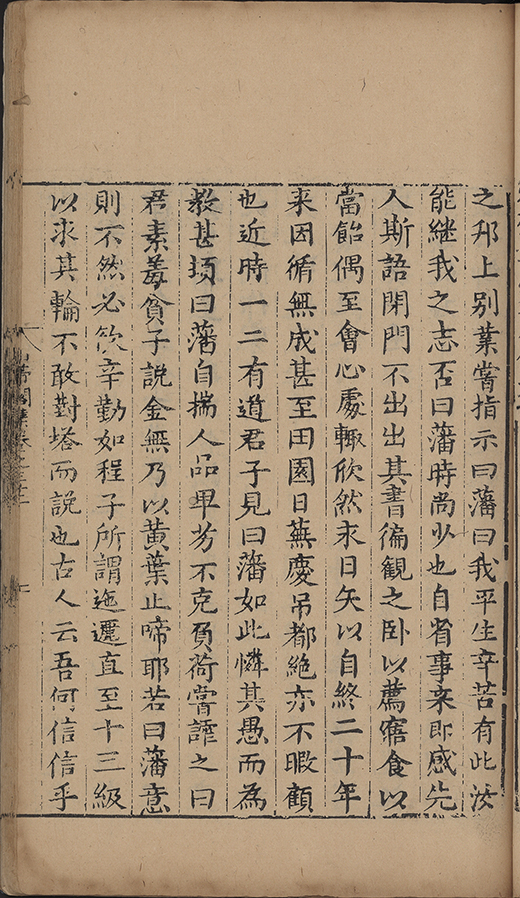 之邦上別業嘗指示曰藩曰我平生辛苦有此汝
能継我之志否曰藩時尚少也自省事来即感先
人斯語閉門不出出其書徧観之卧以薦寤食以
當飴偶至會心處輙欣然末日矢以自終二十年
来因循無成甚至田園日蕪慶吊都絶亦不暇顧
也近時一二有道君子見曰藩如此憐其愚而為
教甚切曰藩自揣人品卑劣不克負荷嘗謹之曰
君素羞貧子說金無乃以黃葉止啼耶若曰藩意
則不然必欲辛勤如程子所謂迤邐直至十三級
以求其輪不敢對塔而說也古人云吾何信信乎
山帶閣集卷之三十三